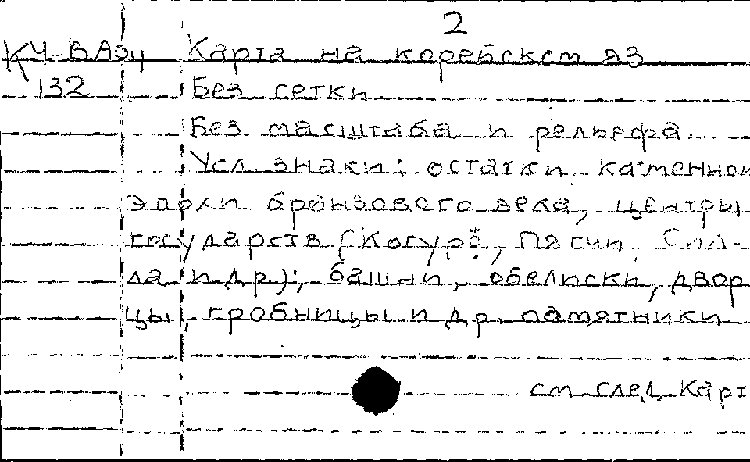 2
КЧ-ВАзц Карта на корейском яз
132 Без сетки
Без масштаба и рельефа.
Усл. знаки: остатки каменной
эпохи бронзового века, центры
государств (Когурё, Пягчи, Сил-
ла и др.); башни, обелиски, двор
цы, гробницы и др. памятники
см след карт